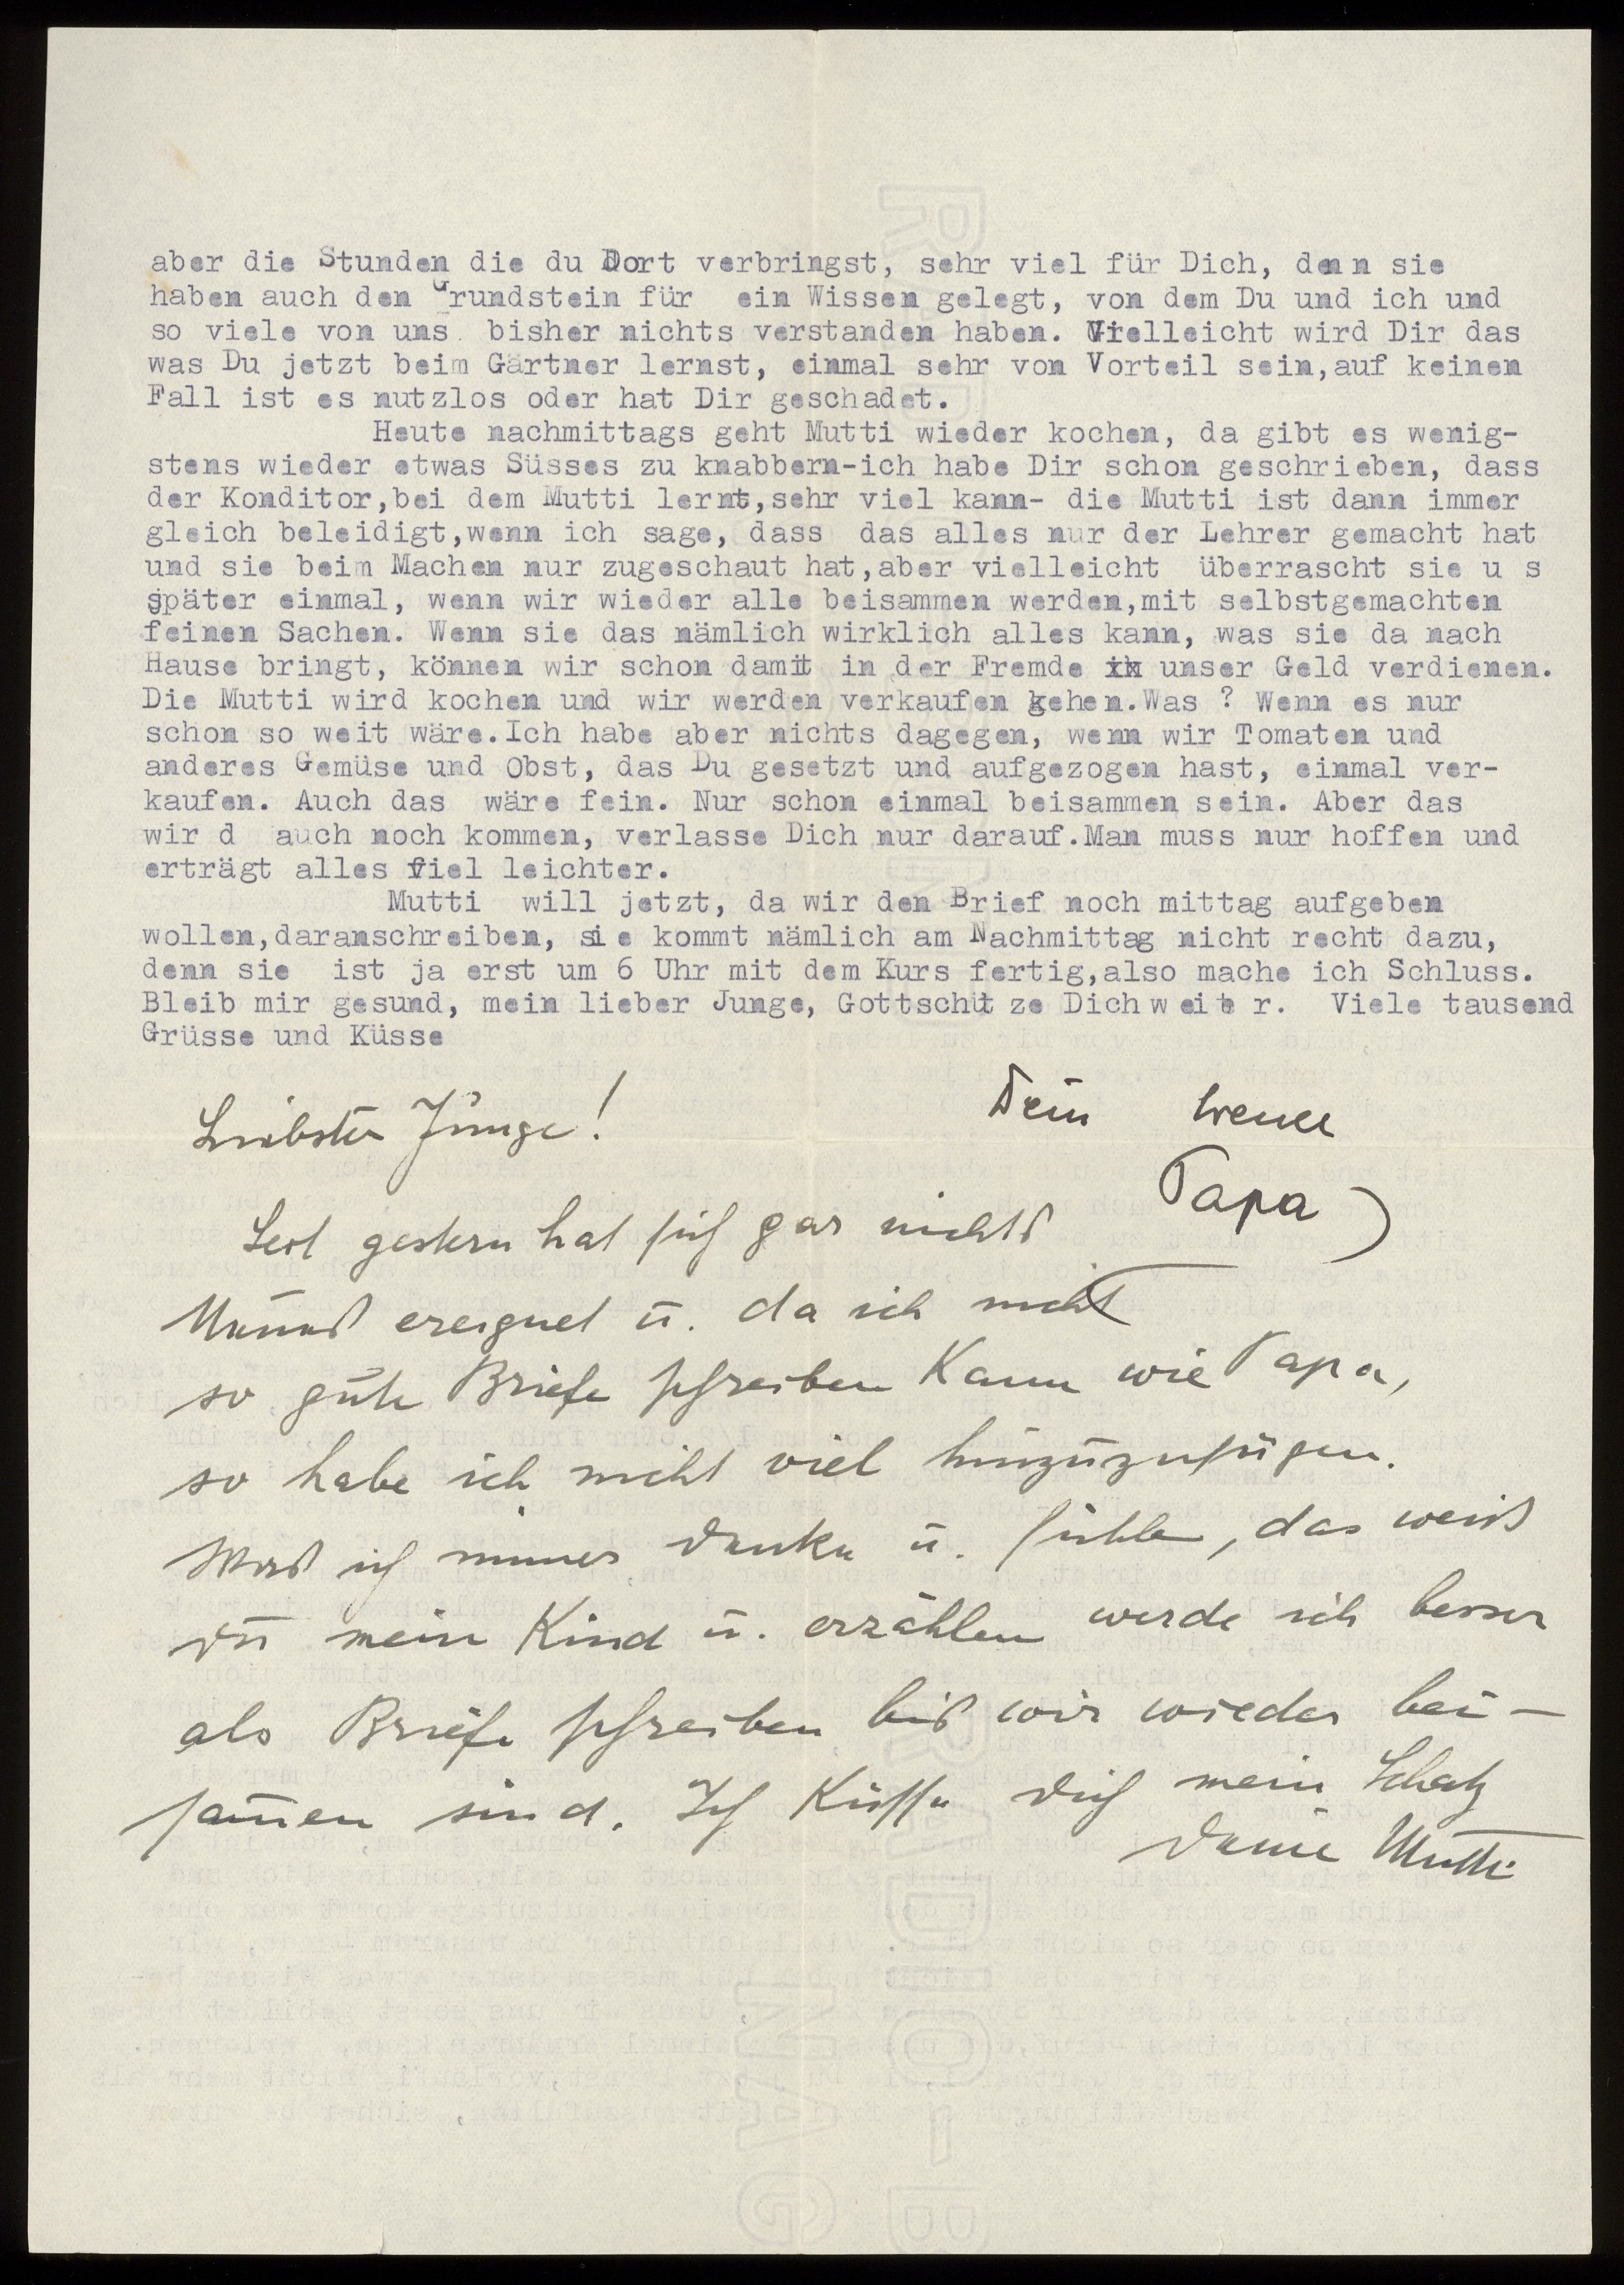 aber die Stunden die du Dort verbringst, sehr viel für Dich, denn sie
haben auch den Grundstein für ein Wissen gelegt, von dem Du und ich und
so viele von uns bisher nichts verstanden haben. Vielleicht wird Dir das
was Du jetzt beim Gärtner lernst, einmal sehr von Vorteil sein,auf keinen
Fall ist es nutzlos oder hat Dir geschadet.
Heute nachmittags geht Mutti wieder kochen, da gibt es wenig-
stens wieder etwas Süsses zu knabbern-ich habe Dir schon geschrieben, dass
der Konditor,bei dem Mutti lernt,sehr viel kann- die Mutti ist dann immer
gleich beleidigt,wenn ich sage, dass das alles nur der Lehrer gemacht hat
und sie beim Machen nur zugeschaut hat,aber vielleicht überrascht sie u s
später einmal, wenn wir wieder alle beisammen werden,mit selbstgemachten
feinen Sachen. Wenn sie das nämlich wirklich alles kann, was sie da nach
Hause bringt, können wir schon damit in der Fremde unser Geld verdienen.
Die Mutti wird kochen und wir werden verkaufen gehen.Was ? Wenn es nur
schon so weit wäre.Ich habe aber nichts dagegen, wenn wir Tomaten und
anderes Gemüse und Obst, das Du gesetzt und aufgezogen hast, einmal ver-
kaufen. Auch das wäre fein. Nur schon einmal beisammen sein. Aber das
wir d auch noch kommen, verlasse Dich nur darauf.Man muss nur hoffen und
erträgt alles viel leichter.
Mutti will jetzt, da wir den Brief noch mittag aufgeben
wollen,daranschreiben, sie kommt nämlich am Nachmittag nicht recht dazu,
denn sie ist ja erst um 6 Uhr mit dem Kurs fertig,also mache ich Schluss.
Bleib mir gesund, mein lieber Junge, Gottschüt ze Dich weite r. Viele tausend
Grüsse und Küsse
Dein treuer
Papa
Liebster Junge!
Seit gestern hat sich gar nichts
Neues ereignet u. da ich nicht
so gute Briefe schreiben kann wie Papa,
so habe ich nicht viel hinzuzufügen.
Was ich immer denke u. fühle, das weißt
du mein Kind u. erzählen werde ich besser
als Briefe schreiben bis wir wieder bei-
sam̅en sind. Ich küsse dich mein Schatz
deine Mutti